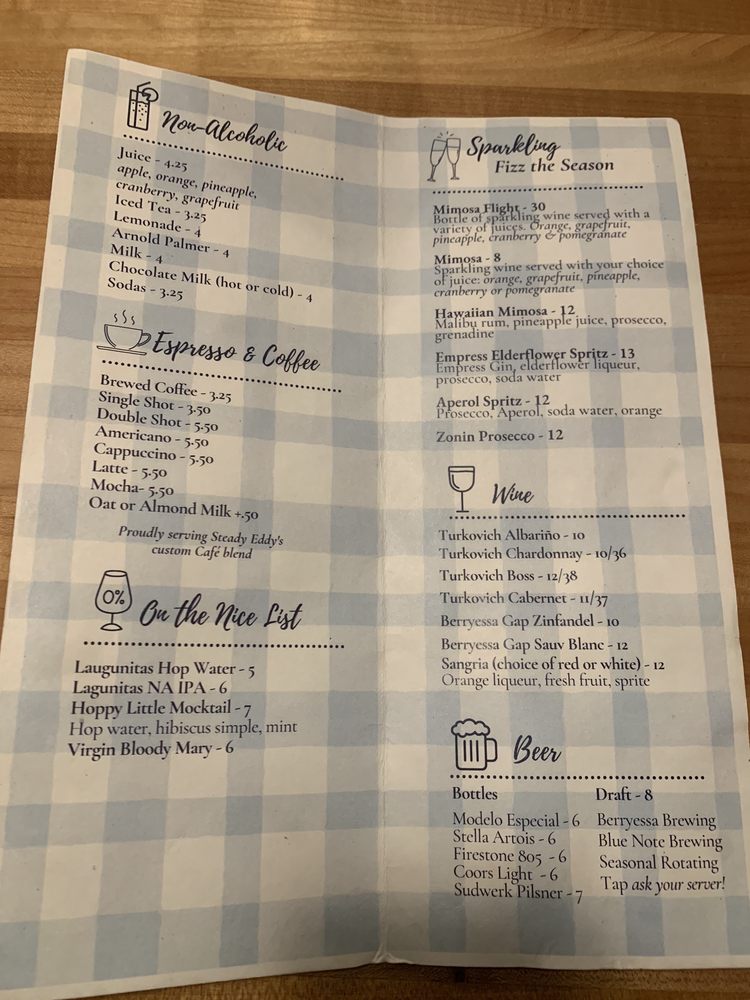 Non-Alcoholic
Juice - 4.25
apple, orange, pineapple,
cranberry, grapefruit
Iced Tea - 3.25
Lemonade - 4
Arnold Palmer - 4
Milk - 4
Chocolate Milk (hot or cold) - 4
Sodas - 3.25
Espresso & Coffee
Brewed Coffee - 3.25
Single Shot - 3.50
Double Shot - 5.50
Americano - 5.50
Cappuccino - 5.50
Latte - 5.50
Mocha- 5.50
Oat or Almond Milk +.50
Proudly serving Steady Eddy's
custom Café blend
0%
On the Nice List
Laugunitas Hop Water - 5
Lagunitas NA IPA - 6
Hoppy Little Mocktail - 7
Hop water, hibiscus simple, mint
Virgin Bloody Mary - 6
Sparkling
Fizz the Season
Mimosa Flight - 30
Bottle of sparkling wine served with a
variety of juices. Orange, grapefruit,
pineapple, cranberry & pomegranate
Mimosa - 8
Sparkling wine served with your choice
of juice: orange, grapefruit, pineapple,
cranberry or pomegranate
Hawaiian Mimosa - 12
Malibu rum, pineapple juice, prosecco,
grenadine
Empress Elderflower Spritz - 13
Empress Gin, elderflower liqueur,
prosecco, soda water
Aperol Spritz - 12
Prosecco, Aperol, soda water, orange
Zonin Prosecco - 12
Wine
Turkovich Albariño - 10
Turkovich Chardonnay - 10/36
Turkovich Boss - 12/38
Turkovich Cabernet - 11/37
Berryessa Gap Zinfandel - 10
Berryessa Gap Sauv Blanc - 12
Sangria (choice of red or white) - 12
Orange liqueur, fresh fruit, sprite
Beer
Bottles
Modelo Especial - 6
Stella Artois - 6
Firestone 805 - 6
Coors Light - 6
Sudwerk Pilsner - 7
Draft - 8
Berryessa Brewing
Blue Note Brewing
Seasonal Rotating
Tap ask your server!